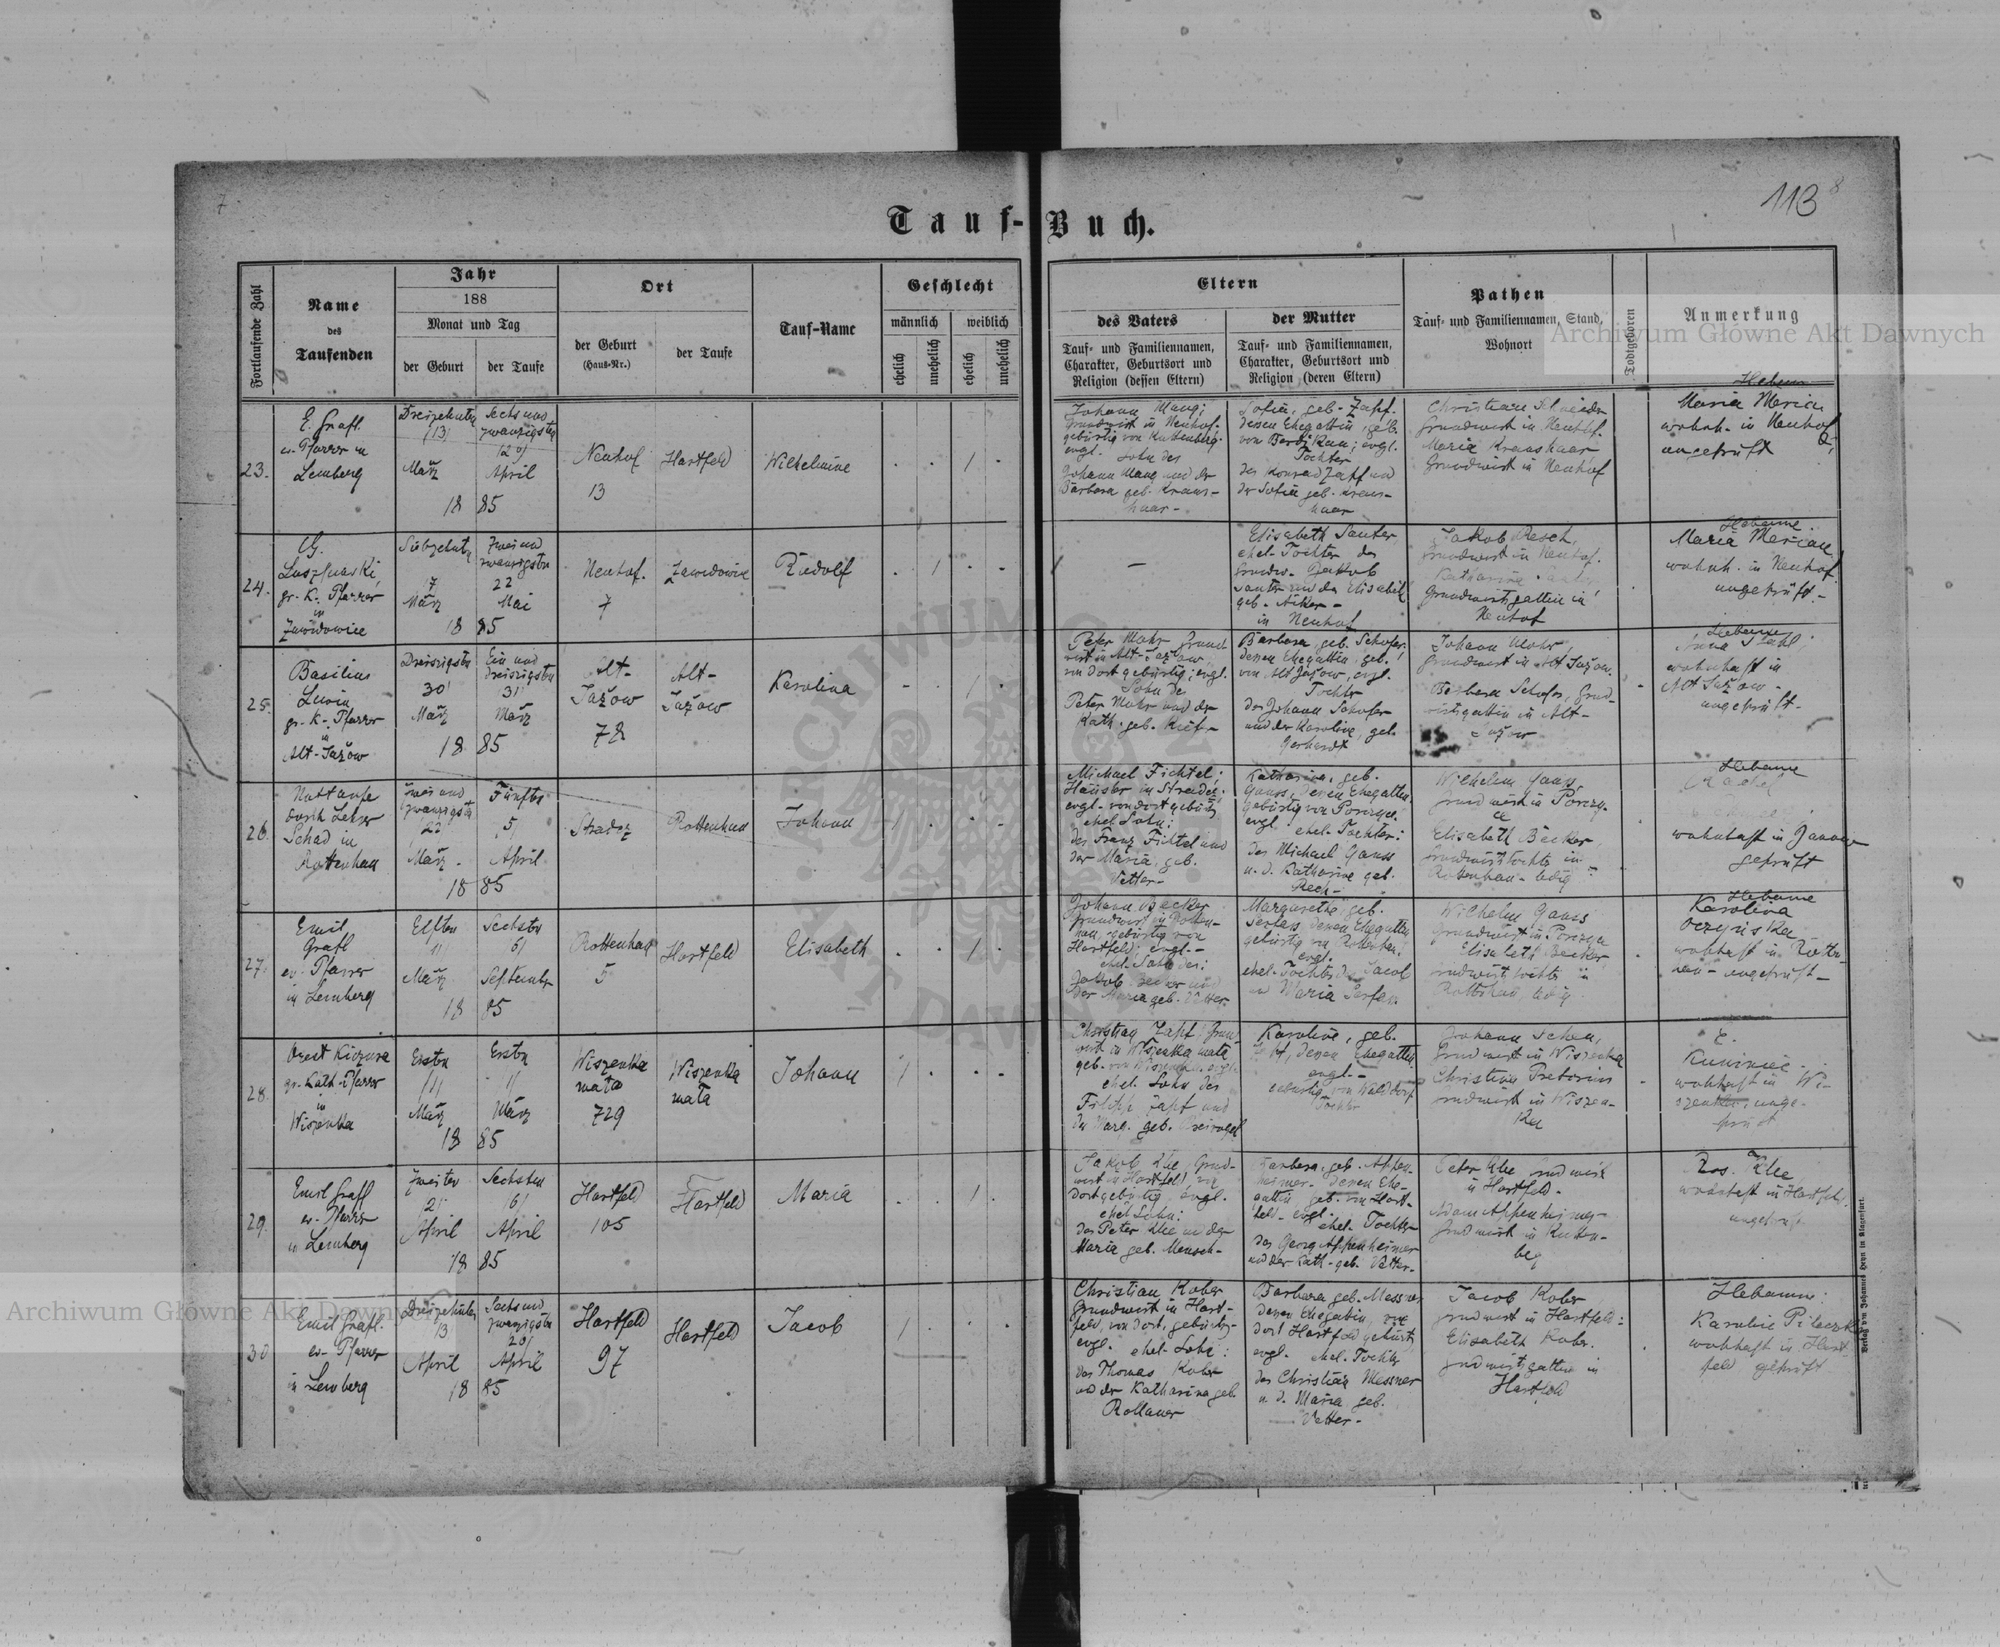 7
113
8
Tauf-Buch.
Fortlaufende Zahl
Name
des
Taufenden
Jahr
188
Monat und Tag
der Geburt
der Taufe
Ort
der Geburt
(Haus-Nr.)
der Taufe
Tauf-Name
Geschlecht
männlich
weiblich
ehelich
unehelich
ehelich
unehelich
Eltern
des Vaters
Tauf- und Familiennamen,
Charakter, Geburtsort und
Religion (dessen Eltern)
der Mutter
Tauf- und Familiennamen,
Charakter, Geburtsort und
Religion (deren Eltern)
Pathen
Tauf- und Familiennamen, Stand,
Wohnort
Todtgeboren
Anmerkung
Archiwum Główne Akt Dawnych
23.
E. Grafl
ev. Pfarrer in
Lemberg
Dreizehnten
13
März
Sechs und
zwanzigsten
April
18 85
Neuhof
13
Hartfeld
Wilhelmine
Johann Mang;
Grundwirt in Neuhof.
gebürtig von Kuttenberg.
evgl. Sohn des
Johann Mang und der
Barbara geb. Kraus-
haar-
Sofia, geb. Zapf.
dessen Ehegattin, geb.
evgl.
Tochter
des Konrad Zapf und
der Sofia geb. Kraus-
haar
Christian Schneider
Grundwirt in Neuhof.
Maria Kraushaar
Grundwirt in Neuhof
Hebam
Maria Merian
wohnh. in Neuhof
ungeprüft
24.
gr. K. Pfarrer
in
Zawidowice
Siebzehnten
7
März
Zwei und
zwanzigsten
22
Mai
18 85
Neuhof.
7
Zawidowice
Rudolf
—
Elisabeth Sauter
ehel. Tochter des
Grundw. Jakob
Sauter und der Elisabeth
geb.
in Neuhof
Jakob Resch,
Grundwirt in Neuhof.
Katharina
Grundwirtsgattin in
Neuhof
Hebamme
Maria Merian
wohnh. in Neuhof.
ungeprüft.-
25.
Basilius
Lewin
gr. K. Pfarrer
in
Alt-Jażow
Dreissigsten
30
März
Ein und
dreissigsten
31
März
18 85
Alt-
Jażow
78
Alt-
Jażow
Karolina
Peter Mohr Grund
wirt in Alt-Jażow,
von dort gebürtig; evgl.
Sohn des
Peter Mohr und der
Kath. geb.
Barbara, geb. Schofer
dessen Ehegattin, geb.
von Alt Jażow, evgl.
Tochter
des Johann Schofer
und der Karoline, geb.
Gerhardt
Johann Mohr,
Grundwirt in Alt Jażow.
Barbara Schofer, Grund-
wirtsgattin in Alt-
Jażow
Hebamme
Anna Stahl,
wohnhaft in
Alt Jażow-
ungeprüft-
26.
Nottaufe
durch Lehrer
Schad in
Rottenhan
Zwei und
zwanzigsten
22
März
Fünften
5
April
18 85
Stradcz
Rottenhan
Johann
Michael Fichtel;
Häusler in Stradcz;
evgl. von dort gebürtig
ehel. Sohn:
des Franz Fichtel und
der Maria, geb.
Vetter-
Katharina, geb.
Gauss, dessen Ehegattin
gebürtig von
evgl. ehel. Tochter:
des Michael Gauss
u. d. Katharine geb.
Rech-
Wilhelm Gauss
Grundwirt in
Elisabeth Becker,
Grundwirtstochter in
Rottenhan- ledig
Hebamme
wohnhaft in Janow
geprüft
27.
Emil
Grafl
ev. Pfarrer
in Lemberg
Elften
11
März
Sechsten
6
September
18 85
Rottenhan
5
Hartfeld
Elisabeth
Johann Becker
Grundwirt in Rotten-
han, gebürtig von
Hartfeld; evgl.-
ehel. Sohn des:
Jakob Becker und
der Maria geb. Vetter.
Margarethe geb.
Serfas, dessen Ehegattin
gebürtig von Rottenhan
evgl.
ehel. Tochter des Jacob
und Maria Serfas
Wilhelm Gauss
Grundwirt in
Elisabeth Becker,
Grundwirtstochter in
Rottenhan, ledig
Hebamme
Karolina
wohnhaft in Rotten-
han- ungeprüft-
28.
Orest Kiczura
gr. Kath. Pfarrer
in
Wiszenka
Ersten
1
März
Ersten
1
März
18 85
Wiszenka
mała
729
Wiszenka
mała
Johann
Christian Zapf Grund-
wirt in Wiszenka mała
ehel. Sohn des
Filipp Zapf und
der Marg. geb. Dreivogel
Karoline, geb.
dessen Ehegattin
evgl.-
gebürtig von Walddorf
Tochter
Johann Schen,
Grundwirt in Wiszenka
Christina Pretorius
Grundwirt in Wiszen-
ka
E.
wohnhaft in Wi-
szenka; unge-
prüft
29.
Emil Grafl
ev. Pfarrer
in Lemberg
Zweiten
2
April
Sechsten
6
April
18 85
Hartfeld
105
Hartfeld
Maria
Jakob Klee, Grund-
wirt in Hartfeld, von
dort gebürtig, evgl.
ehel. Sohn:
des Peter Klee und der
Maria geb. Mensch-
Barbara, geb. Appen-
heimer- dessen Ehe-
gattin, geb. von Hart-
feld- evgl.
ehel. Tochter
des Georg Appenheimer
und der Kath. geb. Vetter.
Peter Klee Grundwirt
in Hartfeld-
Adam Appenheimer
Grundwirt in Kutten-
berg
Ros. Klee
wohnhaft in Hartfeld
ungeprüft
30
Emil Grafl.
ev. Pfarrer
in Lemberg
Dreizehnten
13
April
Sechs und
zwanzigsten
April
18 85
Hartfeld
97
Hartfeld
Jacob
Christian Kober
Grundwirt in Hart-
feld, von dort gebürtig-
evgl. ehel. Sohn:
des Thomas Kober
und der Katharina geb.
Rollauer
Barbara geb. Messner
dessen Ehegattin, von
dort Hartfeld gebürtig
evgl. ehel. Tochter
des Christian Messner
u. d. Maria geb.
Vetter-
Jacob Kober
Grundwirt in Hartfeld:
Elisabeth Kober.
Grundwirtsgattin in
Hartfeld
Hebamme:
Karoline
wohnhaft in Hart-
feld geprüft
Verlag von Johannes Heyn in Klagenfurt.
Archiwum Główne Akt Dawnych
ARCHIWUM GŁÓWNE AKT DAWNYCH